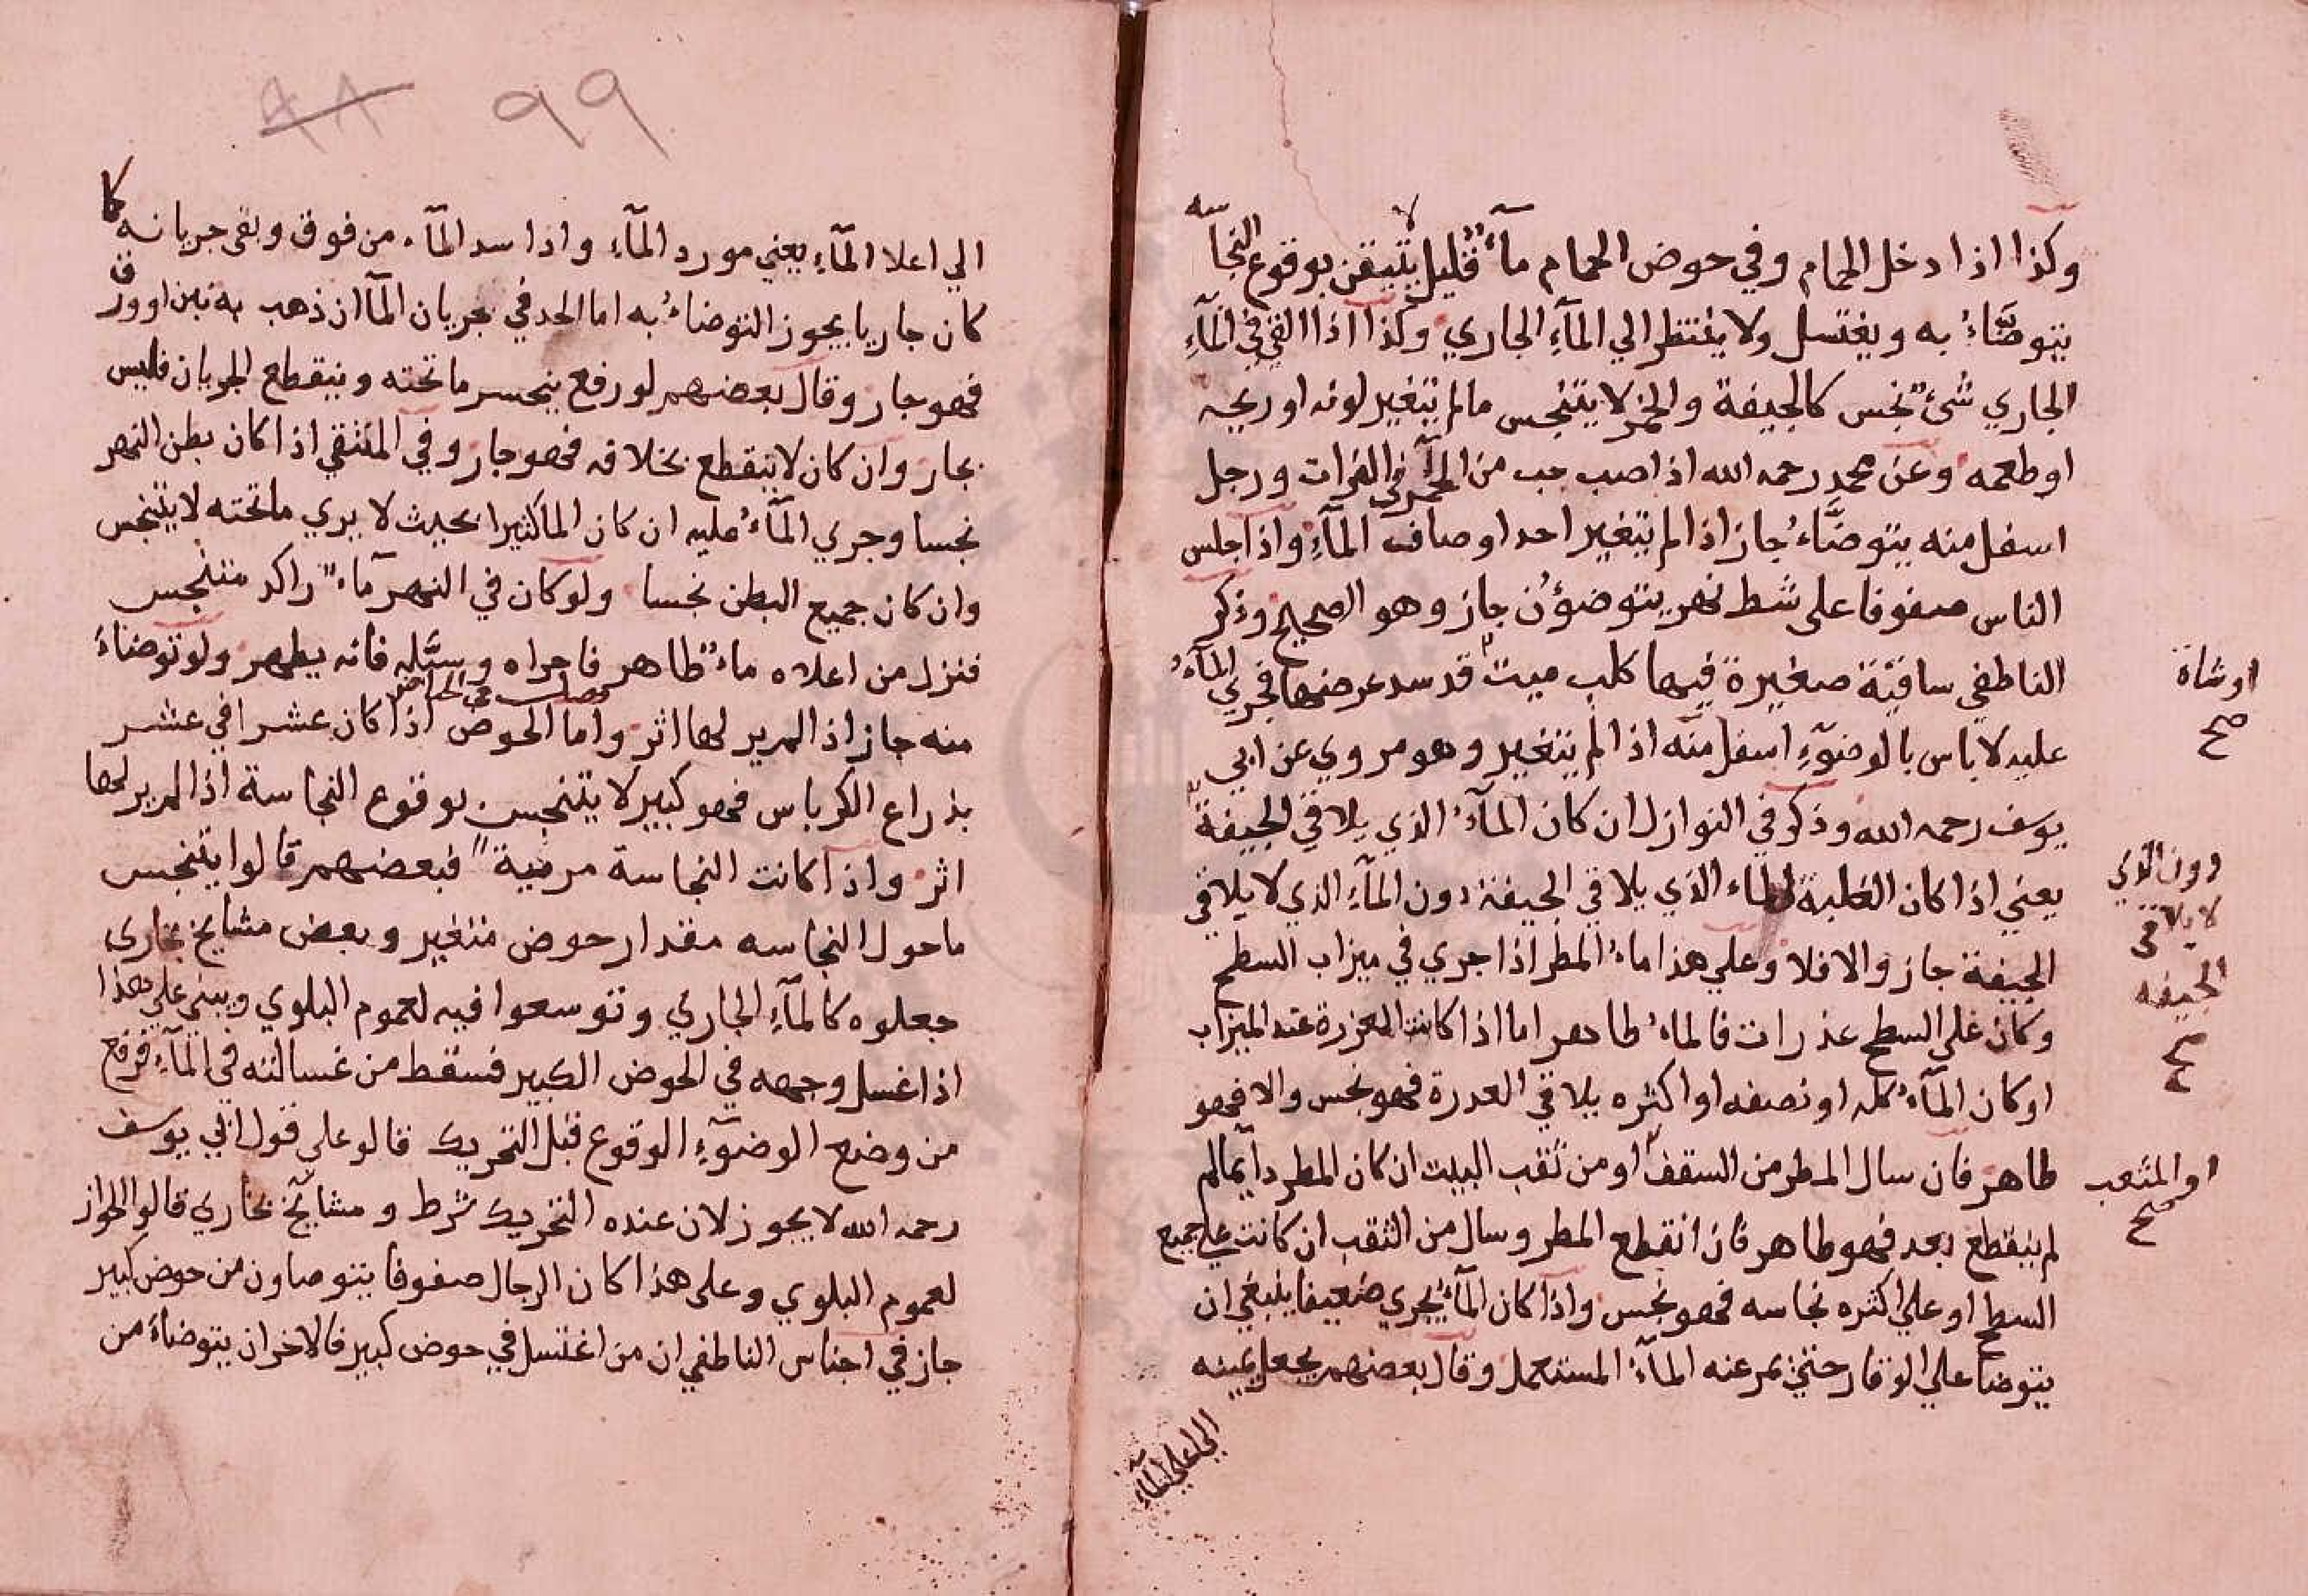 وكذا اذا دخل الحمام وفي حوض الحمام مآء قليل لا يتيقن بوقوع النجاسه
يتوضاء به ويغتسل ولا ينتظر الي المآء الجاري وكذا اذا القي في المآء
الجاري شئ نجس كالجيفة والخمر لا يتنجس مالم يتغير لونه او ريحه
او طعمه وعن محمد رحمه الله اذا صب حب من الخمر في الفرات ورجل
اسفل منه يتوضاء جاز اذا لم يتغير احد اوصاف المآء واذا جلس
الناس صفوفا على شط نهر يتوضؤن جاز وهو الصحيح وذكر
الناطفي ساقية صغيرة فيها كلب ميت قد سد عرضها فجري المآء
او شاة
صح
عليه لا باس بالوضوء اسفل منه اذا لم يتغير وهو مروي عن ابي
يوسف رحمه الله وذكر في النوازل ان كان المآء الذي يلاقي الجيفة
دون الذي
لا يلاقى
الجيفه
صح
يعني اذا كان الغلبة للماء الذي يلاقي الجيفة دون المآء الذي لا يلاقي
الجيفة جاز والا فلا وعلي هذا ماء المطر اذا جري في ميزاب السطح
وكان علي السطح عذرات فالماء طاهر اما اذا كانت العزرة عند الميزاب
او كان المآء كله او نصفه او اكثره يلاقي العدرة فهو نجس والا فهو
طاهر فان سال المطر من السقف او من ثقب البيت ان كان المطر دايما لم
او المثعب
صح
لم ينقطع بعد فهو طاهر فان انقطع المطر وسال من الثقب ان كانت علي جميع
السطح او علي اكثره نجاسه فهو نجس واذا كان المآء يجري ضعيفا ينبغي ان
يتوضا علي الوقار حتي يمر عنه المآء المستعمل وقال بعضهم يجعل يمينه
٩٩
٩٨
الي اعلا المآء يعني مورد المآء واذا سد المآء من فوق وبقى جريانه كا
كان جاريا يجوز التوضاء به اما الحد في جريان المآ ان ذهب به تبن او ورق
فهو جار وقال بعضهم لو رفع ينحسر ما تحته وينقطع الجريان فليس
بجار وان كان لا ينقطع بخلافه فهو جار وفي الملتقي اذا كان بطن النهر
نجسا وجري المآء عليه ان كان الما كثيرا بحيث لا يري ما تحته لا يتنجس
وان كان جميع البطن نجسا ولو كان في النهر مآء راكد متنجس
فنزل من اعلاه ماء طاهر فاجراه وسيله فانه يطهر ولو توضاء
منه جاز اذا لم ير لها اثر واما الحوض اذا كان عشرا في عشر
بذراع الكرباس فهو كبير لا يتنجس بوقوع النجاسة اذا لم ير لها
اثر واذا كانت النجاسة مرئية فبعضهم قالوا يتنجس
ما حول النجاسه مقدار حوض متغير وبعض مشايخ بخارى
جعلوه كالمآء الجاري وتوسعوا فيه لعموم البلوي ويبني علي هذا
اذا غسل وجهه في الحوض الكبير فسقط من غسالته في المآء فرفع
من وضع الوضوء الوقوع قبل التحريك قالو علي قول ابي يوسف
رحمه الله لا يجوز لان عنده التحريك شرط ومشايخ بخاري قالوا الجواز
لعموم البلوي وعلى هذا كان الرجال صفوفا يتوضاون من حوض كبير
جاز في اجناس الناطفي ان من اغتسل في حوض كبير فالاخر ان يتوضاء من